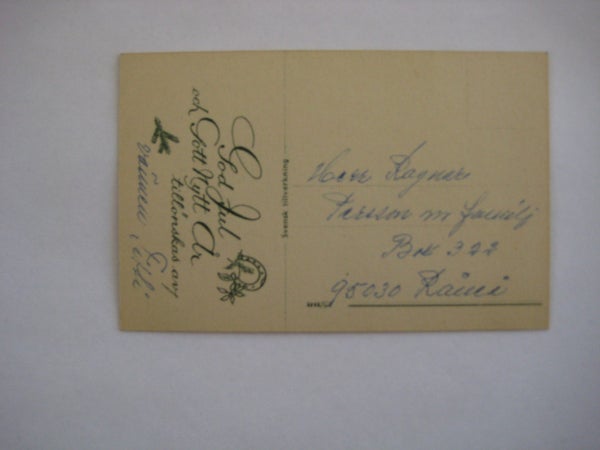 God Jul
och Gott Nytt År
tillönskas av
vännen
SVENSK TILLVERKNING
Herr Ragnar
Persson m familj
Box 322
95030